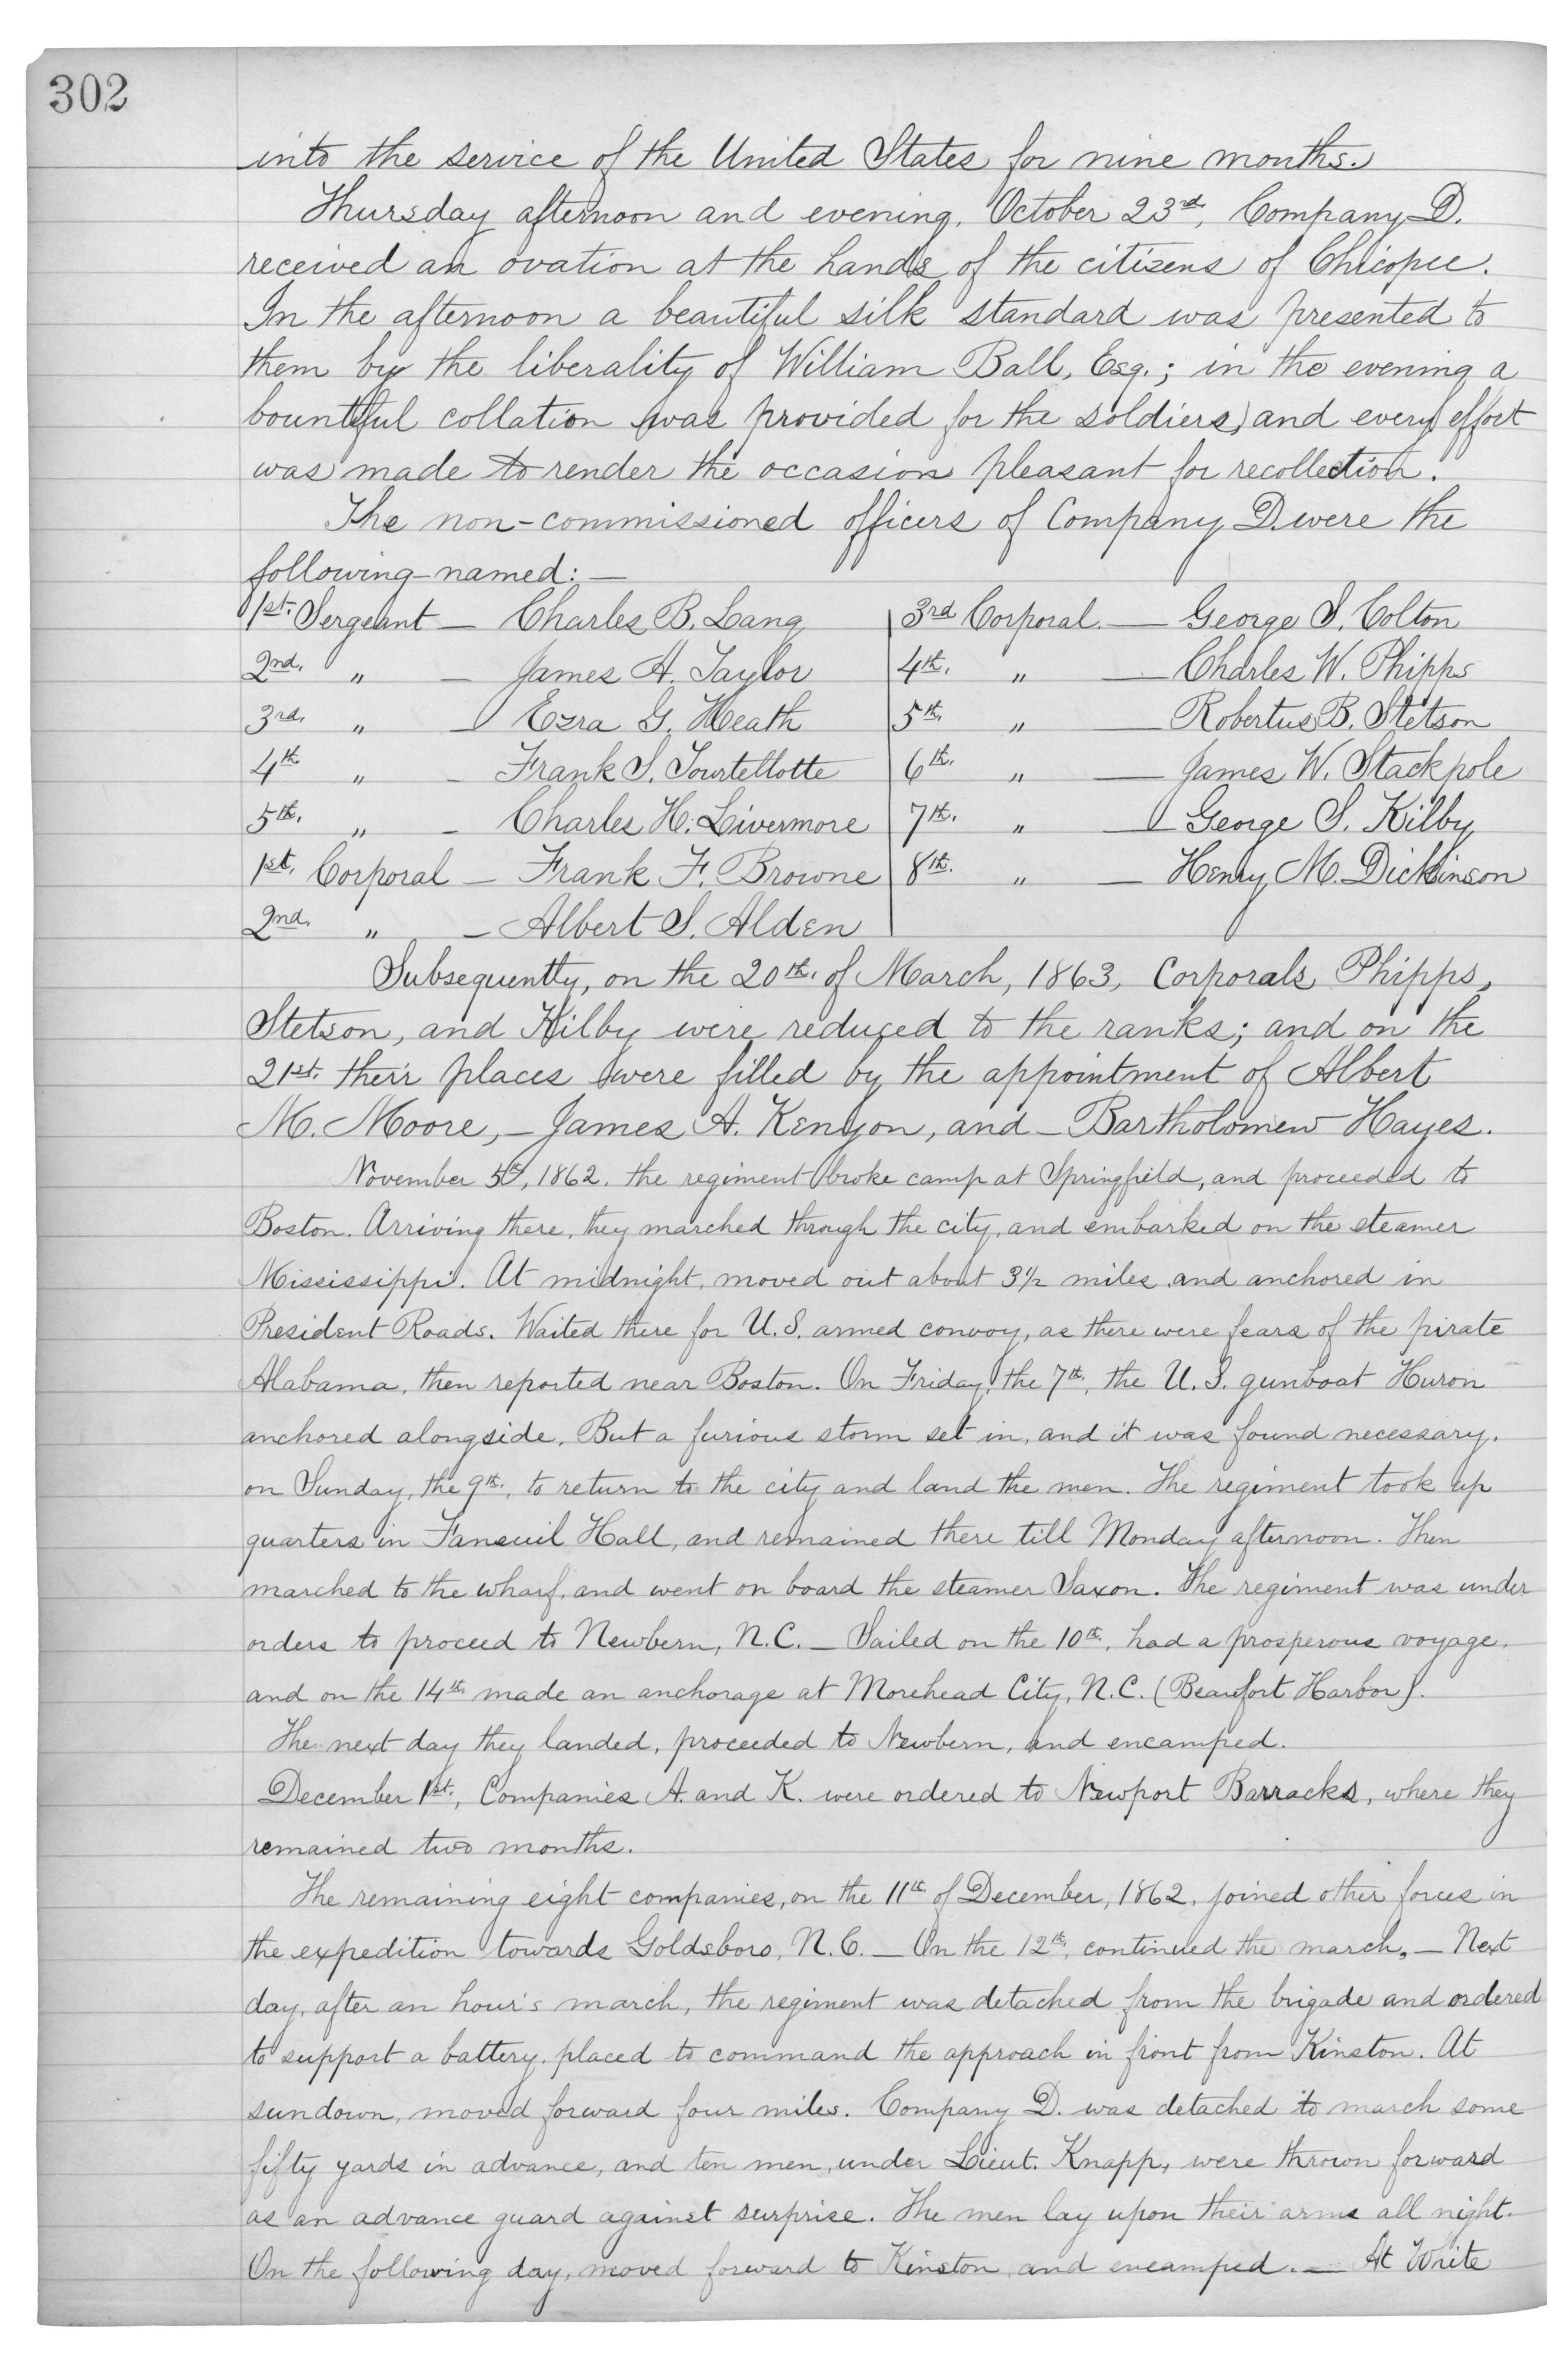 302
into the service of the United States for nine months.
Thursday afternoon and evening, October 23rd, Company D.
received an ovation at the hands of the citizens of Chicopee.
In the afternoon a beautiful silk standard was presented to
them by the liberality of William Ball, Esq.; in the evening a
bountiful collation was provided for the soldiers, and every effort
was made to render the occasion pleasant for recollection.
The non-commissioned officers of Company D. were the
following-named: —
1st. Sergeant — Charles B. Lang
2nd. " — James A. Taylor
3rd. " — Ezra G. Heath
4th " — Frank S. Tourtellotte
5th. " — Charles H. Livermore
1st. Corporal — Frank F. Browne
2nd. " — Albert S. Alden
3rd Corporal. — George S. Colton
4th. " — Charles W. Phipps
5th. " — Robertus B. Stetson
6th. " — James W. Stackpole
7th. " — George S. Kilby
8th. " — Henry M. Dickinson
Subsequently, on the 20th. of March, 1863, Corporals Phipps,
Stetson, and Kilby were reduced to the ranks; and on the
21st. their places were filled by the appointment of Albert
M. Moore, — James A. Kenyon, and — Bartholomew Hayes.
November 5th, 1862. the regiment broke camp at Springfield, and proceeded to
Boston. Arriving there, they marched through the city, and embarked on the steamer
Mississippi. At midnight, moved out about 3½ miles and anchored in
President Roads. Waited there for U.S. armed convoy, as there were fears of the pirate
Alabama, then reported near Boston. On Friday, the 7th, the U.S. gunboat Huron
anchored alongside. But a furious storm set in, and it was found necessary,
on Sunday, the 9th., to return to the city and land the men. The regiment took up
quarters in Faneuil Hall, and remained there till Monday afternoon. Then
marched to the wharf, and went on board the steamer Saxon. The regiment was under
orders to proceed to Newbern, N.C. — Sailed on the 10th, had a prosperous voyage,
and on the 14th. made an anchorage at Morehead City, N.C. (Beaufort Harbor).
The next day they landed, proceeded to Newbern, and encamped.
December 1st., Companies A. and K. were ordered to Newport Barracks, where they
remained two months.
The remaining eight companies, on the 11th. of December, 1862, joined other forces in
the expedition towards Goldsboro, N.C. — On the 12th, continued the march, — Next
day, after an hour's march, the regiment was detached from the brigade and ordered
to support a battery, placed to command the approach in front from Kinston. At
sundown, moved forward four miles. Company D. was detached to march some
fifty yards in advance, and ten men, under Lieut. Knapp, were thrown forward
as an advance guard against surprise. The men lay upon their arms all night.
On the following day, moved forward to Kinston and encamped. — At White